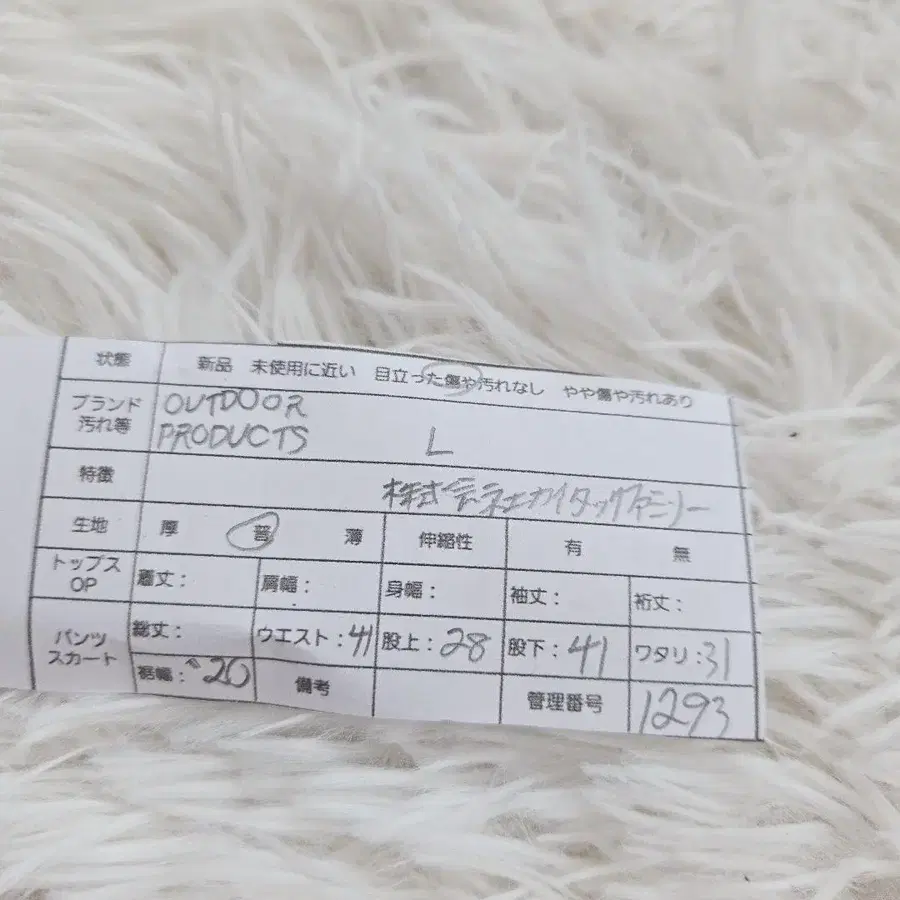 状態 新品 未使用に近い 目立った傷や汚れなし やや傷や汚れあり
ブランド OUTDOOR
汚れ等 PRODUCTS L
特徴 株式会社カイタックファミリー
生地 厚 普 薄 伸縮性 有 無
トップス
OP 着丈: 肩幅: 身幅: 袖丈: 裄丈:
パンツ
スカート 総丈: ウエスト:41 股上:28 股下:41 ワタリ:31
裾幅:20 備考 管理番号 1293